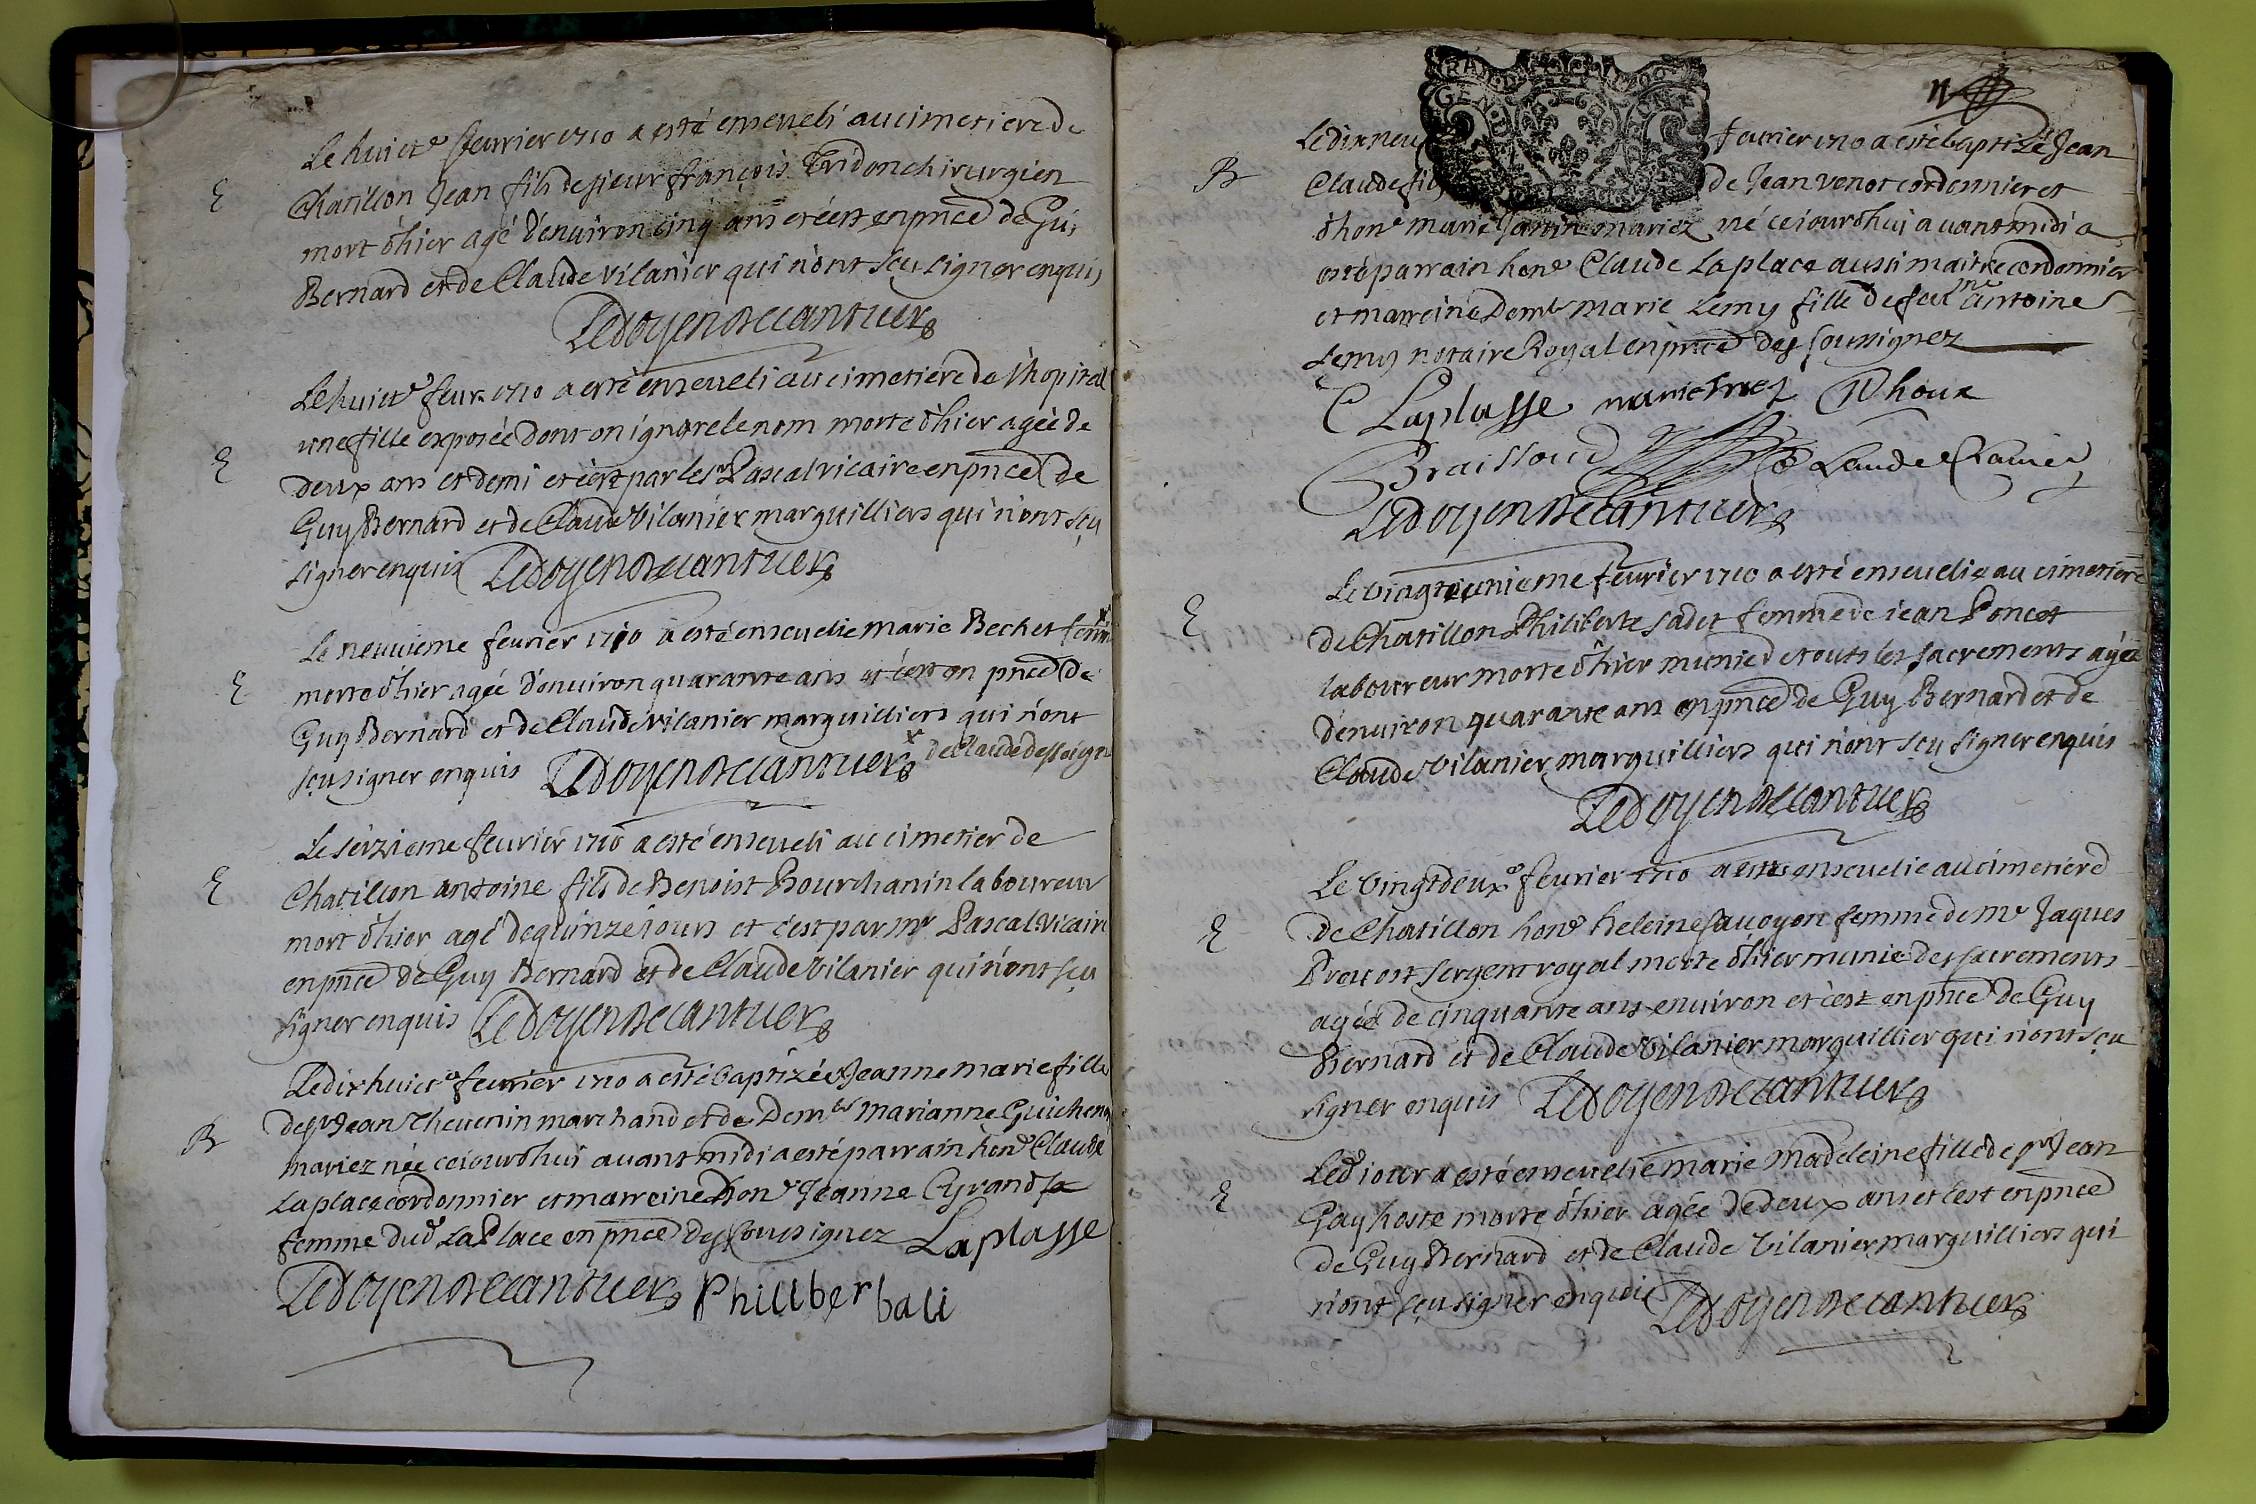 Le huict.e feurier 1710 a esté enseueli au cimetiere de
E Chatillon Jean fils de sieur françois Tridon chirurgien
mort d'hier agé d'enuiron cinq ans et c'est en pnce de Gui
Bernard et de Claude vilanier qui n'ont sçu signer enquis
Le doyen
Le huict.e feur. 1710 a esté enseueli au cimetiere de l'hopital
une fille exposée dont on ignore le nom morte d'hier agée de
E deux ans et demi et c'est par le sr Pascal vicaire en pnce de
Guy Bernard et de Claude Vilanier marguilliers qui n'ont sçu
signer enquis Le doyen
Le neuuieme feurier 1710 a esté enseuelie marie Bechet fem x
E morte d'hier agée d'enuiron quarante ans et c'est en pnce de
Guy Bernard et de Claude vilanier marguilliers qui n'ont
sçu signer enquis Le doyen x de Claude
Le seizieme feurier 1710 a esté enseueli au cimetier de
E Chatillon antoine fils de Benoist Bourchanin laboureur
mort d'hier agé de quinze iours et c'est par mr Pascal vicaire
en pnce de Guy Bernard et de Claude Vilanier qui n'ont sçu
signer enquis Le doyen
Le dixhuict.e feurier 1710 a esté baptizée Jeanne marie fille
de sr Jean Theuenin marchand et de Dem.lle marianne
B mariez née ceiourd'hui auant midi a esté parrain hon.e Claude
Laplace cordonnier et marreine hon.e Jeanne Grand
femme dud. La Place en pnce des soussignez Laplasse
Le doyen Phillber bali
Le dixneu feurier 1710 a esté baptizé Jean
B Claude fils de Jean venot cordonnier et
d'hon.e marie Janin mariez né ceiourd'hui auant midi a
esté parrain hon.e Claude Laplace aussi maitre cordonnier
et marreine Dem.lle marie Lemy fille de feu me antoine
Lemy notaire Royal en pnce des soussignez
C Laplasse marie
Claude
Le doyen
Le vingt unieme feurier 1710 a esté enseuelie au cimetiere
E de Chatillon Philiberte sadet femme de iean Poncet
laboureur morte d'hier munie de touts les sacrements agée
d'enuiron quarante ans en pnce de Guy Bernard et de
Claude Vilanier marguilliers qui n'ont sçu signer enquis
Le doyen
Le vingtdeux.e feurier 1710 a esté enseuelie au cimetiere
E de Chatillon hon.e heleine sauoyen femme de me Jaques
Preuost sergent royal morte d'hier munie des sacrements
agée de cinquante ans enuiron et c'est en pnce de Guy
Bernard et de Claude Vilanier marguillier qui n'ont sçu
signer enquis Le doyen
Led. iour a esté enseuelie marie madeleine fille de sr Jean
E Gay hoste morte d'hier agée de deux ans et c'est en pnce
de Guy Bernard et de Claude Vilanier marguilliers qui
n'ont sçu signer enquis Le doyen